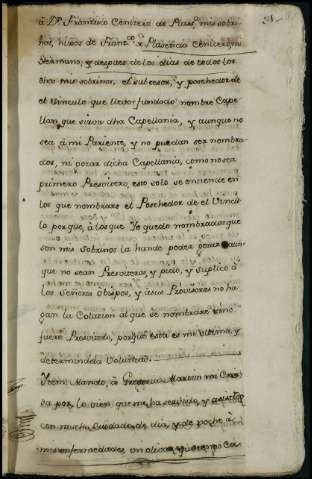 à Dn Francisco Cenizero de Plasa mis sobri-
nos, hixos de Franco Plasencio Cenizero mi
Hermano, y despues de los dias de todos los
dhos mis sobrinos, el subcesor, y poschedor de
el Vinculo que llebo fundado nombre Cape-
llan que sirva dha Capellania, y aunque no
sea à mi Pariente, y no puedan ser nombra-
dos, ni gozar dicha Capellania, como no sea
primero Presvitero, esto solo se entiende en
los que nombrare el Poschedor de el Vincu-
lo porque, à los que Yo quedo nombrados que
son mis sobrinos la hande poder gozar aun-
que no sean Presviteros, y pido, y suplico à
los señores Obispos, y à sus Provisores no ha-
gan la Colazion al que se nombrare sino
fuere Presvitero, porque esta es mi ultima, y
determinada Voluntad.
Ytem Mando, à Martin mi Cria-
da por lo vien que me ha servido, y asistido
con mucho cuidado, de dia, y de noche à
mis enfermedades, un olivar, y tiempo